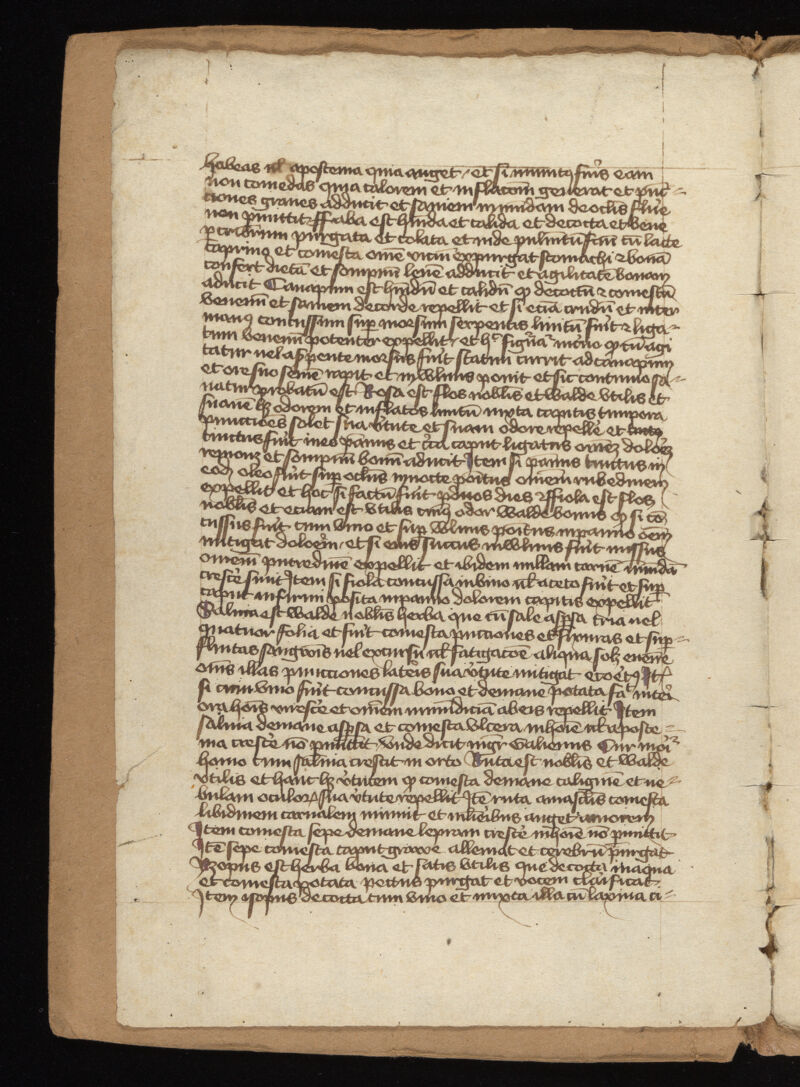 habeas ul apostema quia auget / et si inuitus fueris eam
non comedas quia calorem et inflacoem generat et punc⸗
ciones graues adducit et saniem inmundam de oclis flue
non pmittit Faba est huida et calida et decocta et bene
purgata et colata et inde pulmentū fcm cū lacte
caprino et comesta omē viciū expurgat stomachi ⁊ bonā
confert dietā et sompnū leuē adducit et agilitatē bonam
aducit Canapum est huidū et calidū qd decoctū ⁊ comestū
venenū et saniem de corde repellit et si etiā crudū et inter
manus concussum sup morsum serpentis linitū fuit ⁊ liga⸗
tum venenū potenter expellit et
tatur uel a spente morsus fuit statim currit ad canapum
et ore suo semē rapit et in wlnus ponit et sic continuo sa⸗
natur probatū est Rosa est flos nobilis et walde vtilis et
suauē hz odorem et inflatos linitū iuxta capitis timpora
puncciōes solet sua vtute et suam odore repelle et
tinctus fuit in eo pannus et circa caput ligatus omēz doloēz
et sompnū bonū aducit Item si pannus tinctus in
eodē oleo fuit sup oclos in nocte positus omem rubedinem
expellit et hoc si factū fuit p duos dies Fiola est flos
nobilis et etiam est vtilis cuius odor walde bonus qd si cō
cussus fuit cum vino et sup wlnus positus in panno oēm
mitigat doloem / et si eius succus in wlnus fuit missus
omem putredinē expellit et ibidem nullam carnē inmūdā
cresce sinit Item si fiola concussa in vino ul aceto fuit et sup
caput infirmi posita in panno dolorem capitis expellit
Saluia est walde nobilis herba que cū sale aspsa tria uel
quatuor folia et fuit comesta puncciones et sup⸗
fluitas sangwis uel excursu ul fatigacoē aliqua solz euenire
omīs illas puncciones lateris sua vtute mitigat Itē
si cum vino fuit concussa bono et demane potata
ora hois virescē et omem inmundiciā ab eis repellit Item
saluia demane aspsa et comesta vlcera in hoīe ul aposte⸗
ma cresce nō pmittit vnde dicit mgr Galienus Cur mori
homo cum saluia crescit in orto Ruta est nobilis et walde
vtilis et hanc hz vtutem qd comesta demane caliginē et ne⸗
bulam oculor sua vtute repellit Itē ruta a masclis comesta
libidinem carnalem minuit et in mlieribus auget amorem
Item comesta sepe demane lepram cresce in hoīe nō pmittit
Itē sepe comesta caput graue alleuiat et cerebrū purgat
Yzopus est herba bona et satis vtilis que decocta in aqua
et comesta potata pectus purgat et vocem clarificat
Item ysopus decocta cum vino et mixta illa cū laxiuia ci⸗